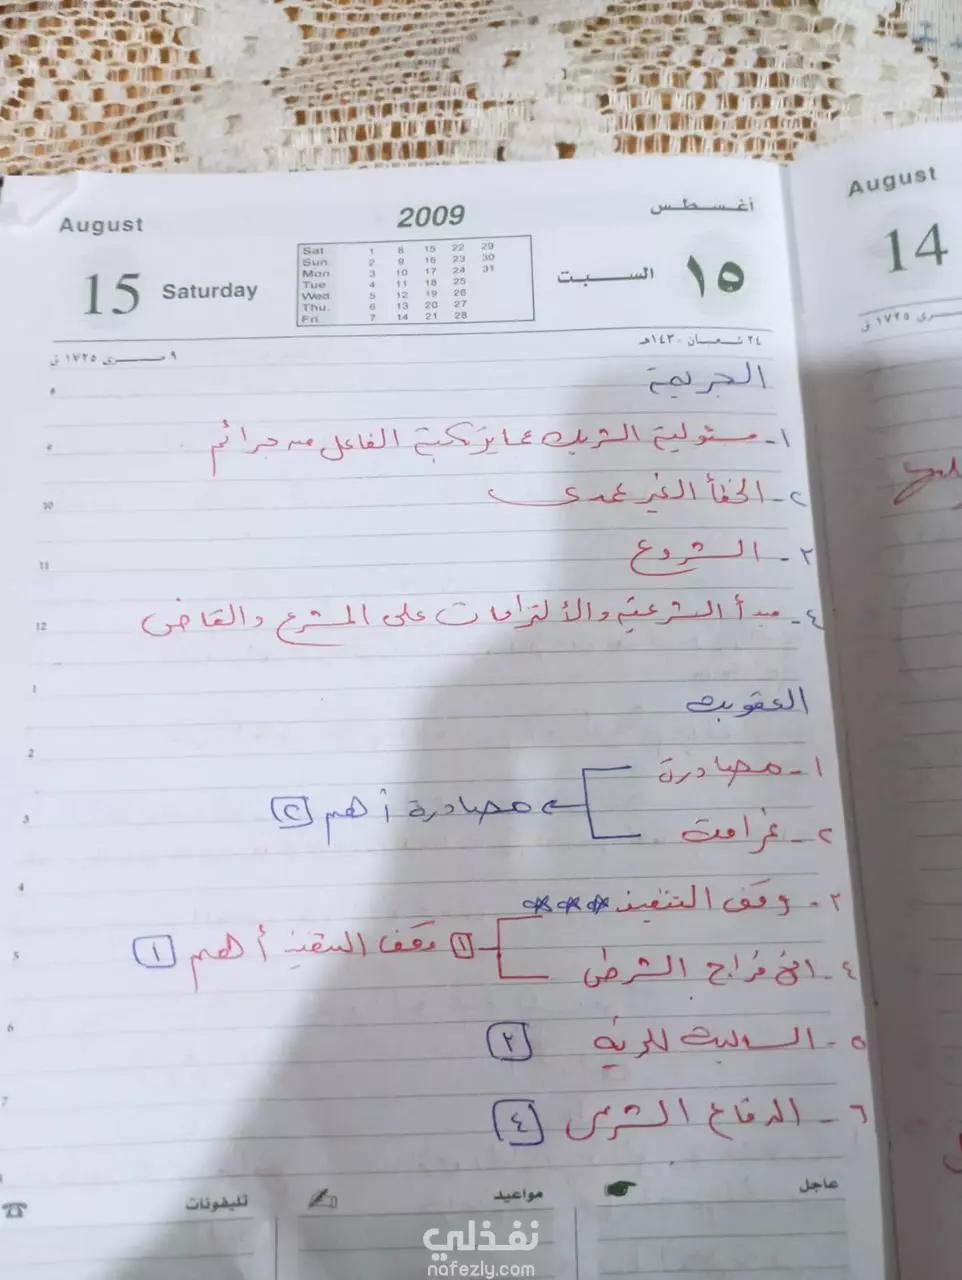 August 2009 أغسطس
15 Saturday السبت ١٥
Sat 1 8 15 22 29
Sun. 2 9 16 23 30
Mon 3 10 17 24 31
Tue 4 11 18 25
Wed. 5 12 19 26
Thu. 6 13 20 27
Fri. 7 14 21 28
٩ مسرى ١٧٢٥ ق ٢٤ شعبان ١٤٣٠هـ
August
14
مسرى ١٧٢٥ ق
الجريمة
١- مسئولية الشريك عما يرتكبة الفاعل من جرائم
٢- الخطأ الغير عمدى
٣- الشروع
٤- مبدأ الشرعية والألتزامات على المشرع والقاضى
العقوبة
١- مصادرة
مصادرة أهم ٢
٢- غرامة
٣- وقف التنفيذ ***
١ وقف التنفيذ أهم ١
٤- الافراج الشرطى
٥- السالبة للحرية ٣
٦- الدفاع الشرعى ٤
9
10
11
12
1
2
3
4
5
6
7
عاجل
مواعيد
تليفونات
نفذلي
nafezly.com